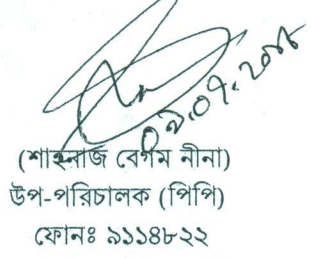 ০৯.০৭.২০১৮
(শাহনাজ বেগম নীনা)
উপ-পরিচালক (পিপি)
ফোনঃ ৯১১৪৮২২